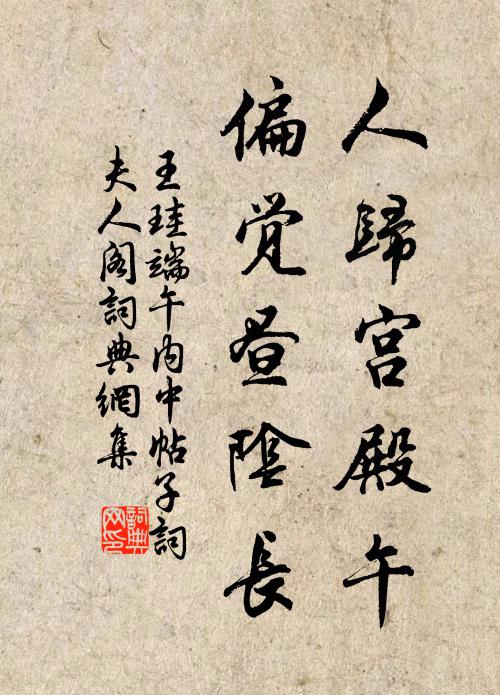 人歸宮殿午
偏覺昼陰長
王珪端午內中帖子詞
夫人閣詞典網集
詞典网印